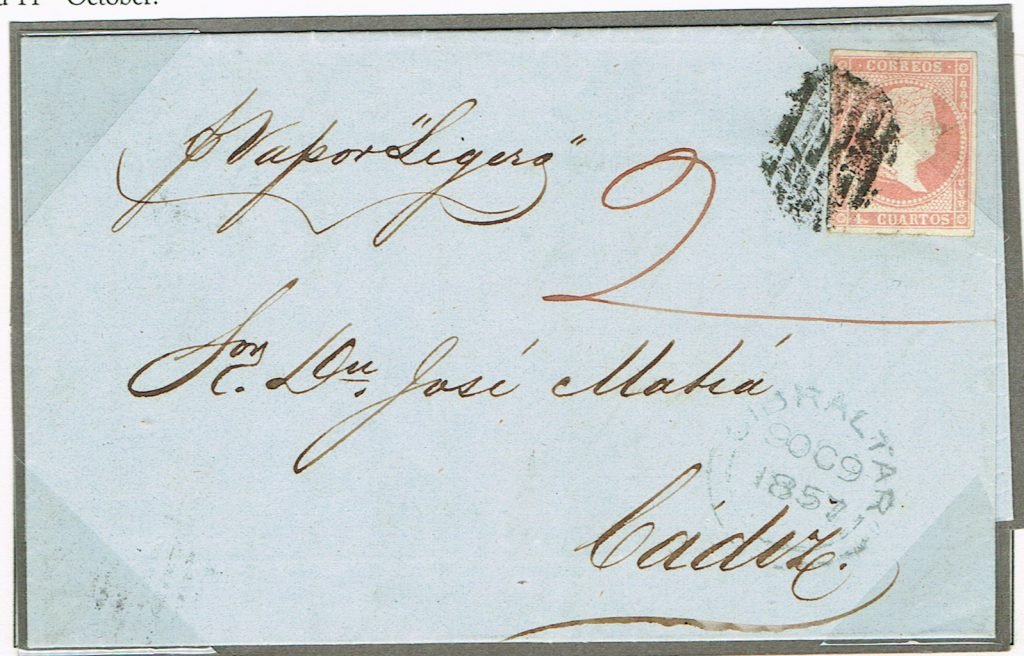 11 October.
CORREOS
4. CUARTOS
p Vapor "Ligero"
2
Sor. Dn. José Matiá
GIBRALTAR
OC 9
1857
Cádiz.